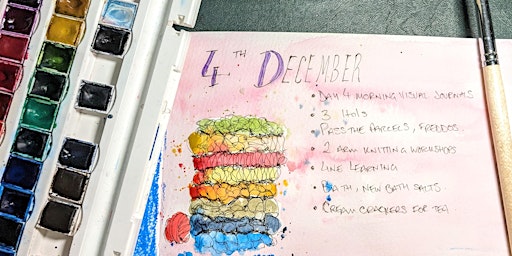 4TH DECEMBER
• DAY 4 MORNING VISUAL JOURNALS
• 3
PASS THE PARCELS, FREDDOS.
• 2 ARM KNITTING WORKSHOPS
• LINE LEARNING
• BATH, NEW BATH SALTS.
• CREAM CRACKERS FOR TEA